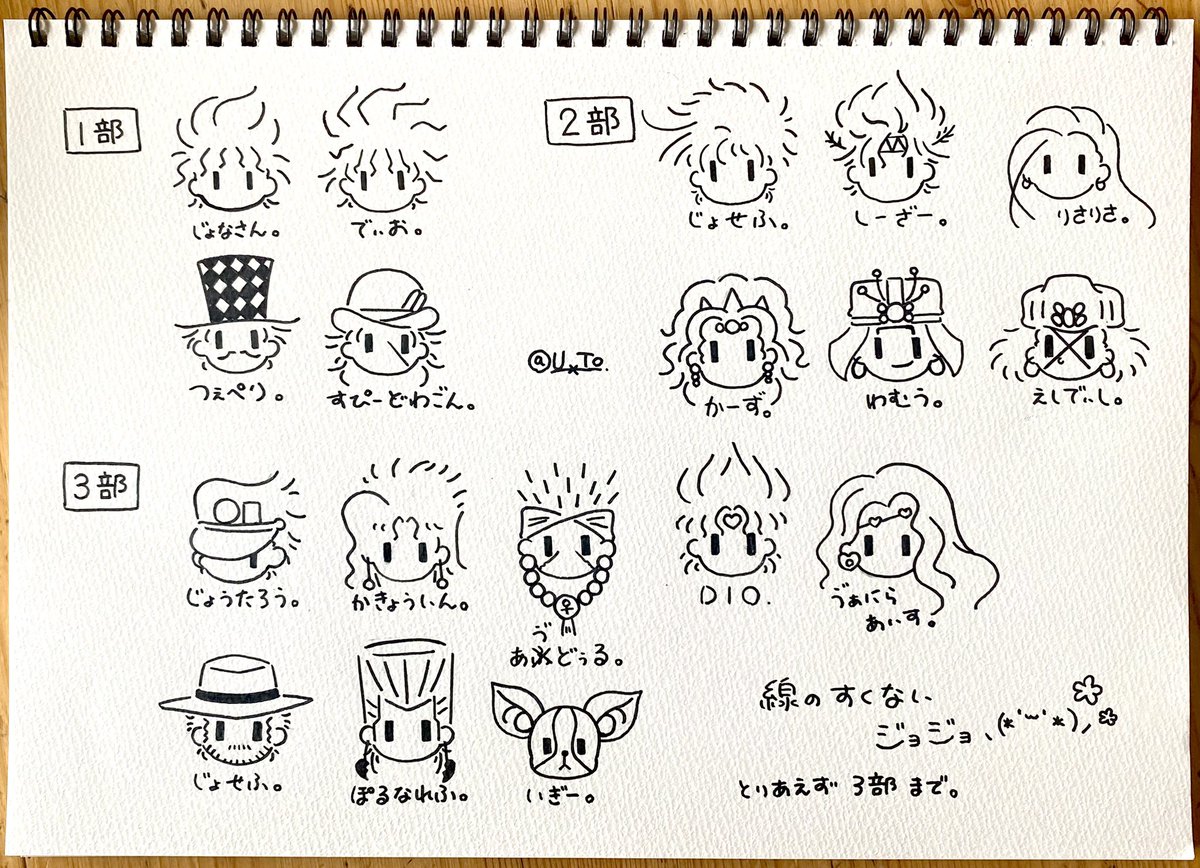 1部
じょなさん。
でぃお。
つぇぺり。
すぴーどわごん。
2部
じょせふ。
しーざー。
りさりさ。
@U×To.
かーず。
わむう。
えしでぃし。
3部
じょうたろう。
かきょういん。
ゔ
あ どぅる。
DIO.
ゔぁにら
あいす。
じょせふ。
ぽるなれふ。
いぎー。
線のすくない
ジョジョ、(*'︶'*),
とりあえず 3部 まで。